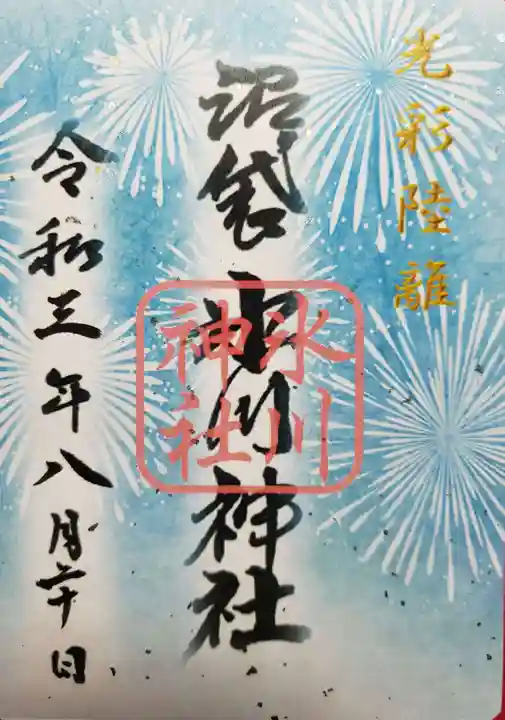 光彩陸離
沼袋氷川神社
氷川
神社
令和三年八月二十日